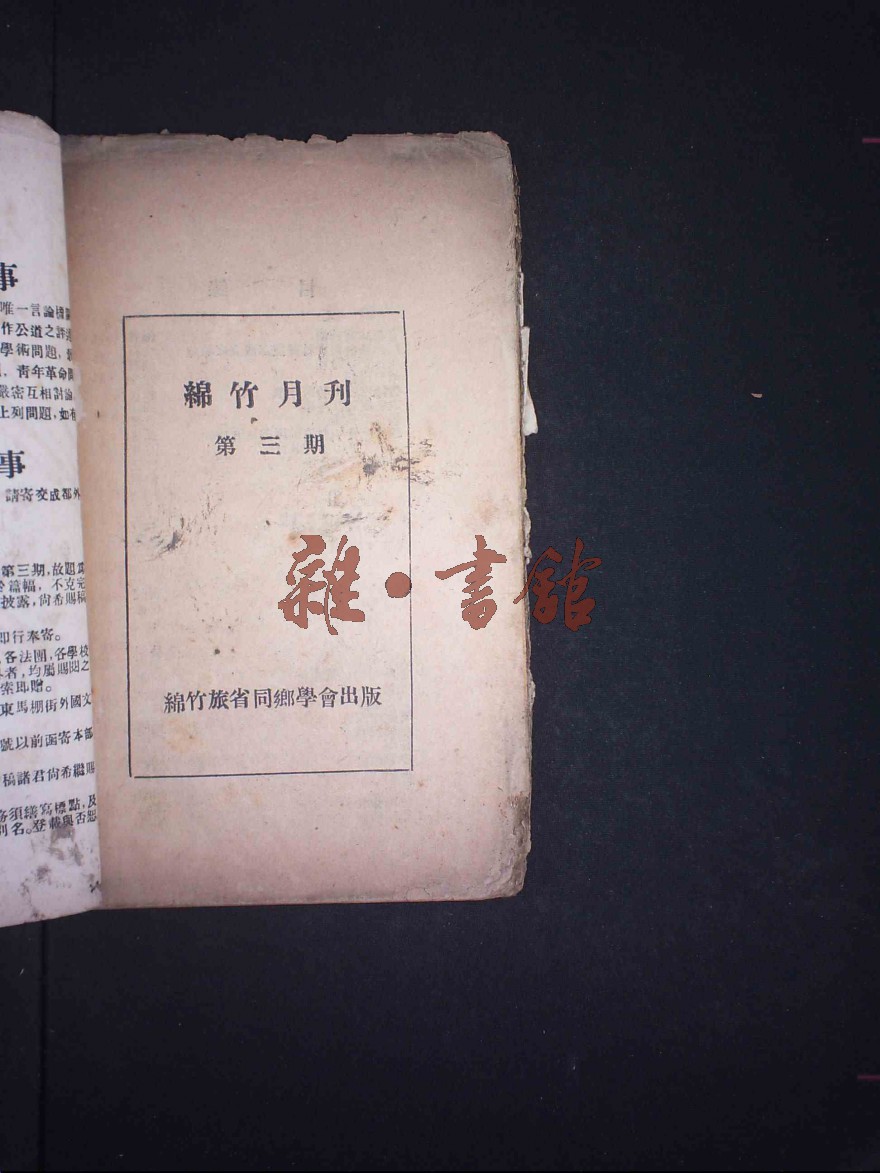 綿竹月刊
第三期
綿竹旅省同鄉學會出版
雜·書館
事
唯一言論機
作公道之評
學術問題,
青年革命
嚴密互相討論
上列問題,如有
事
請寄交成都外
第三期,故題
篇幅,不克完
披露,尙希賜稿
即行奉寄。
各法團,各學校
者,均屬賜閱之
索即贈。
東馬棚街外國文
號以前函寄本部
稿諸君尙希繼賜
須繕寫標點,及
別名。登載與否恕